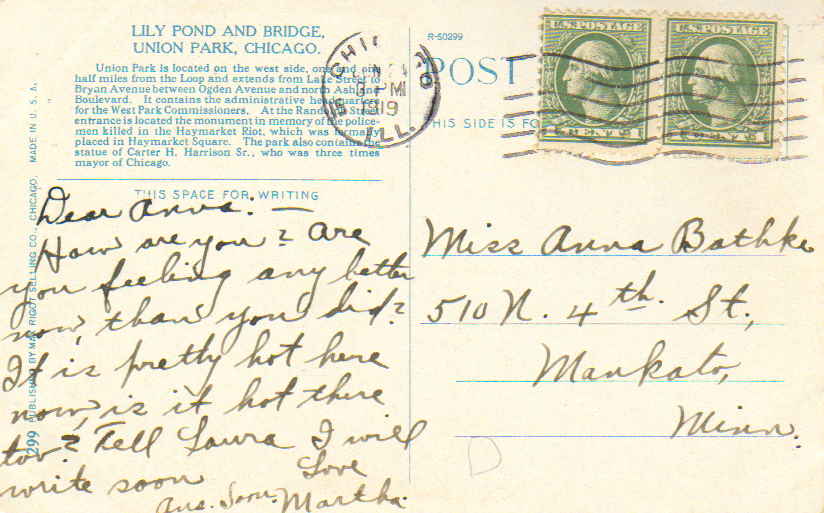 LILY POND AND BRIDGE,
UNION PARK, CHICAGO.
Union Park is located on the west side, one and one
half miles from the Loop and extends from Lake Street to
Bryan Avenue between Ogden Avenue and north Ashland
Boulevard. It contains the administrative headquarters
for the West Park Commissioners. At the Randolph Street
entrance is located the monument in memory of the police-
men killed in the Haymarket Riot, which was formally
placed in Haymarket Square. The park also contains the
statue of Carter H. Harrison Sr., who was three times
mayor of Chicago.
THIS SPACE FOR WRITING
Dear Anna:—
How are you? Are
you feeling any better
now, than you did?
It is pretty hot here
now, is it hot there
too? Tell Laura I will
write soon
Ans. Soon.
Love
Martha.
299 PUBLISHED BY MAX RIGOT SELLING CO., CHICAGO. MADE IN U. S. A.
R-50299
POST
THIS SIDE IS FO
CHICAGO
PM
1919
ILL.
U.S. POSTAGE
1 CENTS 1
U.S. POSTAGE
1 CENTS 1
Miss Anna Bathke
510 N. 4th. St.,
Mankato,
Minn.
D